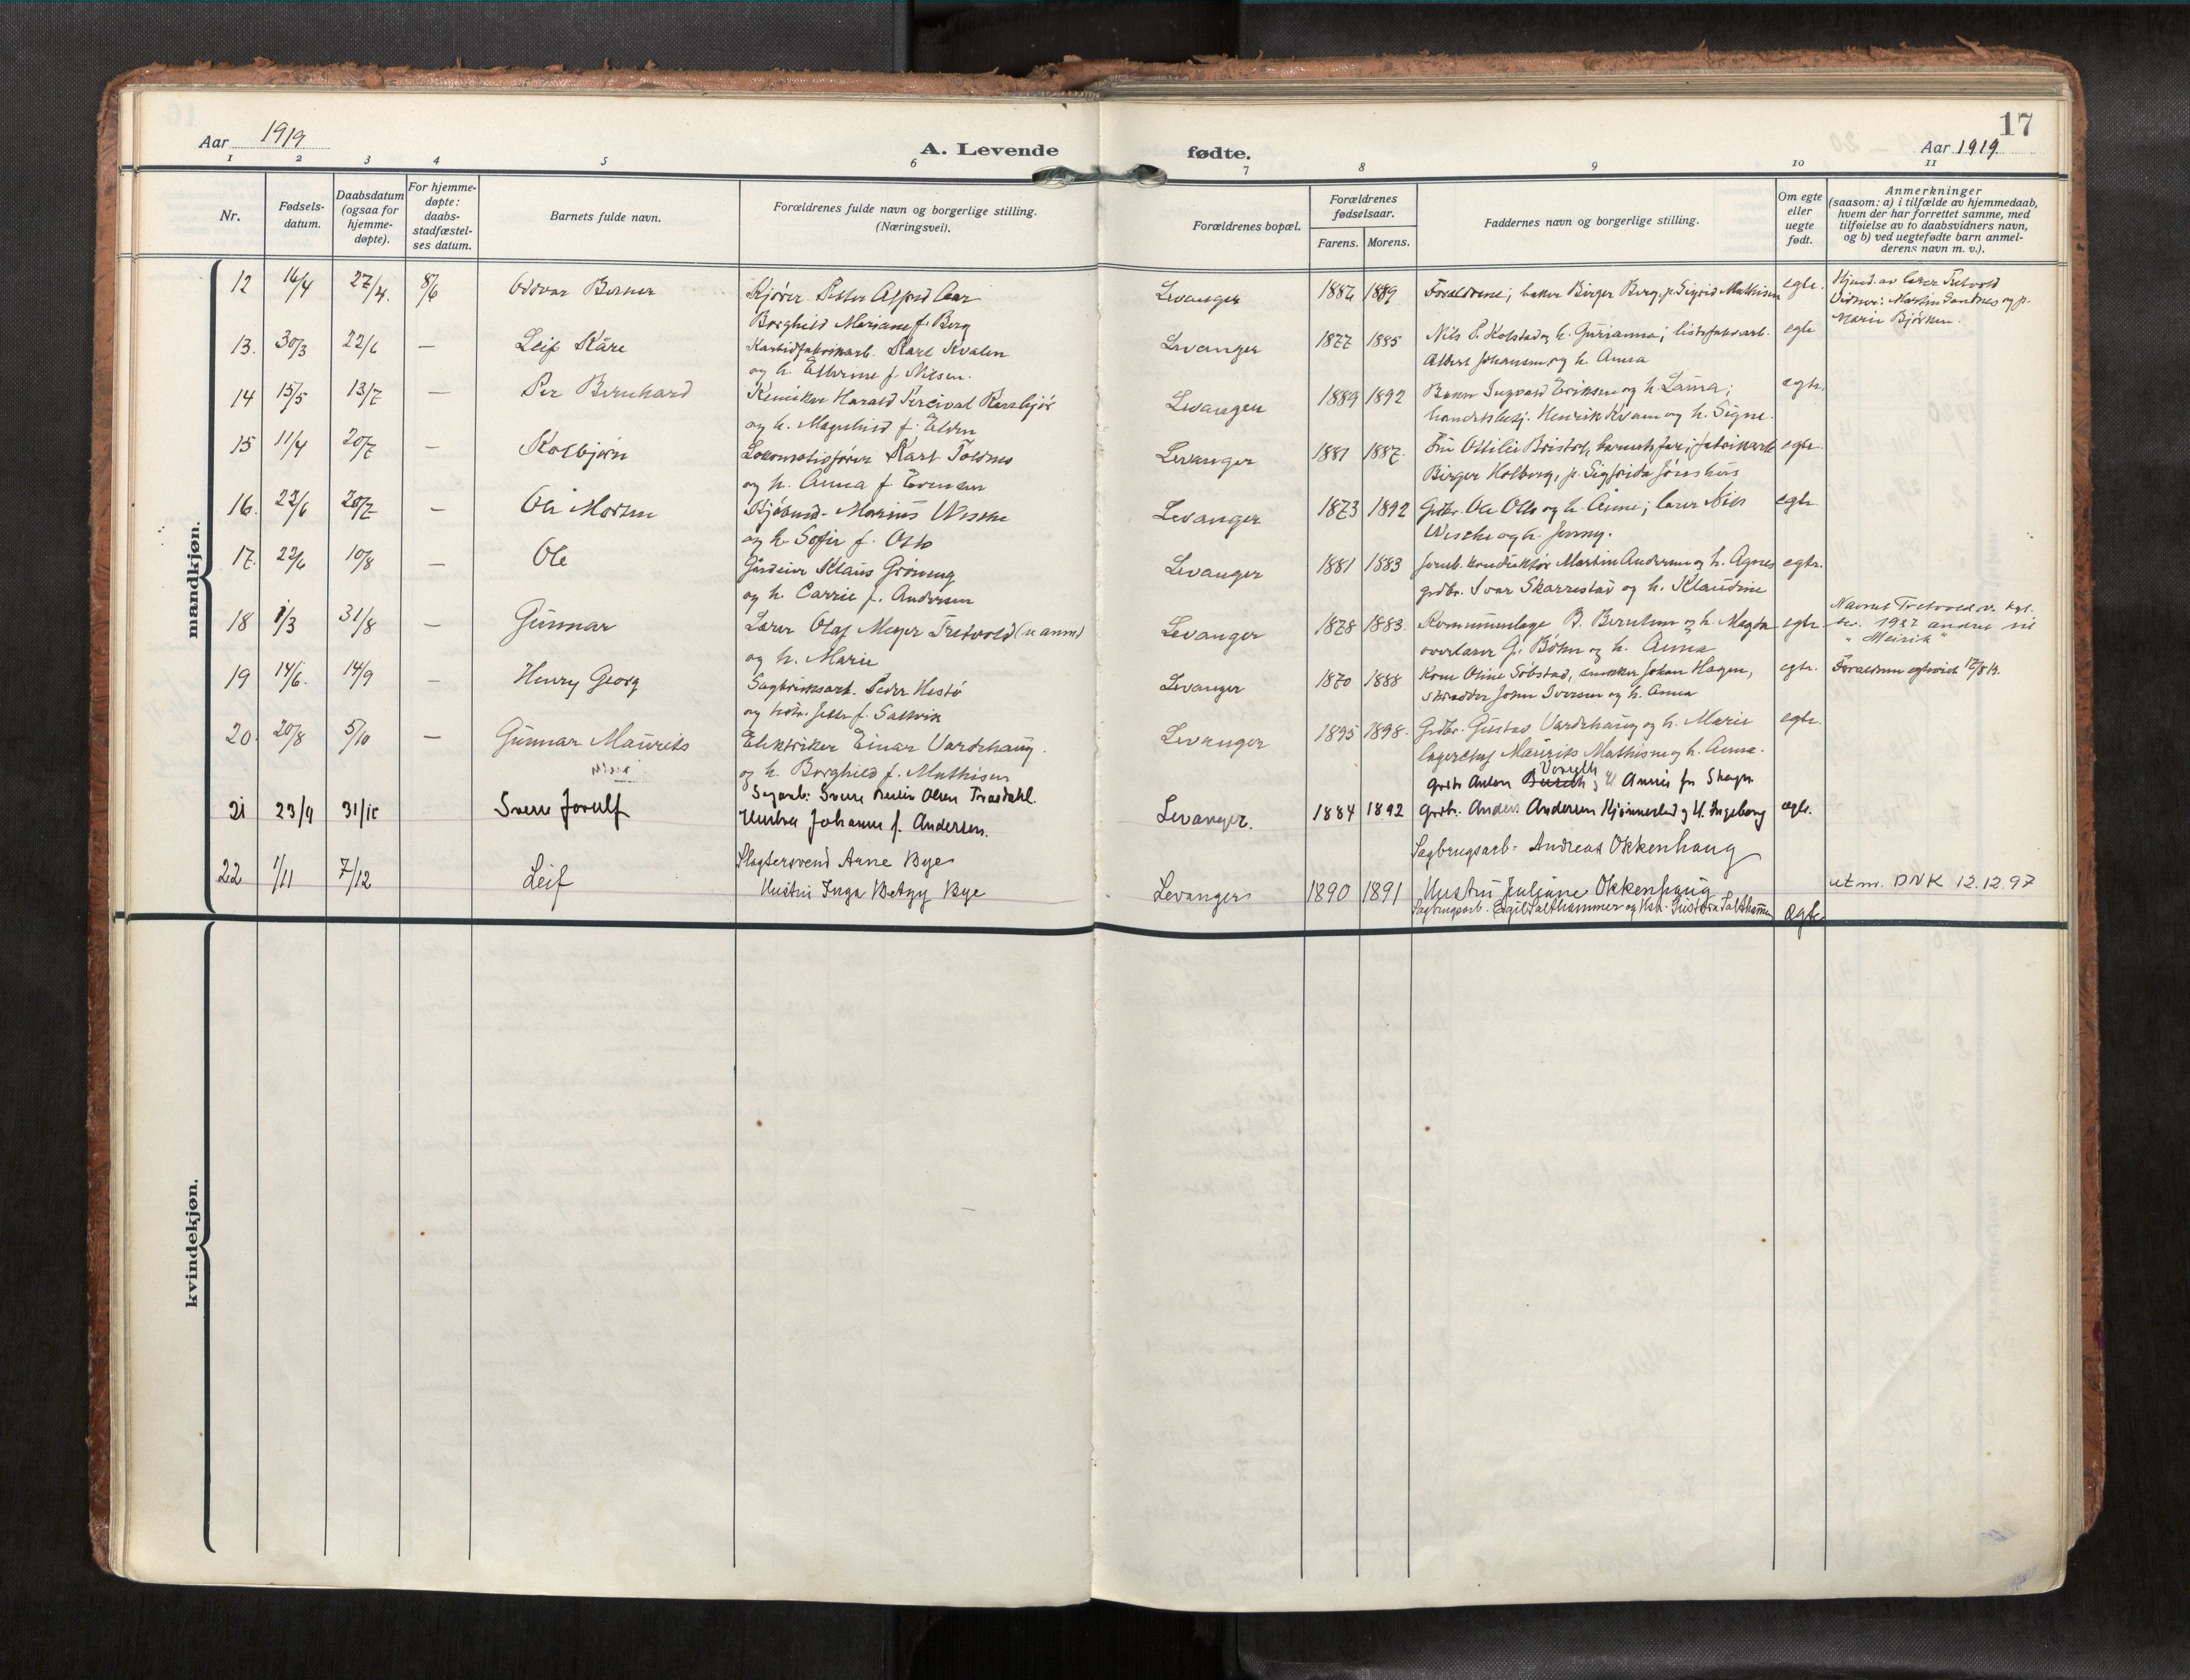 17
Aar 1919
A. Levende
fødte.
Aar 1919
1 2 3 4 5 6 7 8 9 10 11
Nr.
Fødsels-
datum.
Daabsdatum
(ogsaa for
hjemme-
døpte).
For hjemme-
døpte:
daabs-
stadfæstel-
ses datum.
Barnets fulde navn.
Forældrenes fulde navn og borgerlige stilling.
(Næringsvei).
Forældrenes bopæl.
Forældrenes
fødselsaar.
Farens. Morens.
Faddernes navn og borgerlige stilling.
Om egte
eller
uegte
født.
Anmerkninger
(saasom: a) i tilfælde av hjemmedaab,
hvem der har forrettet samme, med
tilføielse av to daabsvidners navn,
og b) ved uegtefødte barn anmel-
derens navn m. v.).
mandkjøn.
12 16/4 27/4. 8/6 Oddvar Berner Kjører Peter Alfred Aar Levanger 1886 1889 Forældrene; baker Birger Berg, p. Sigrid Mathisen egte. Hjmd. av lærer Tretvold
Borghild Mariane f. Berg Vidner: Martin Sandnes og p.
Marie Bjørken.
13. 30/3 22/6 — Leif Kåre Karbidfabrikarb. Karl Kvalen Levanger 1877 1885 Nils P. Kolstad og h. Gurianna; listefabrarb. egte
og h. Albertine f. Nilsen. Albert Johansen og h. Anna
14 15/5 13/7 — Per Bernhard Kemiker Harald Percival Levanger 1889 1892 Baker Ingvald Eriksen og h. Laura; egte.
og h. Magnhild f. Elden handelsbetj. Henrik Kvam og h. Signe.
15 11/4 20/7 — Kolbjørn Lokomotivfører Karl Toldnes Levanger 1881 1887. Fru Ottilie barnets far; fabrikarb egte.
og h. Anna f. Evensen Birger Holberg, p. Sigfrida Jørnshus
16. 22/6 20/7 — Ole Morten Kjøbmd. Marius Wesche Levanger 1873 1892 Grdbr. Ole Otto og h. Anne; lærer Nils egte
og h. Sofie f. Otto Wesche og h. Jenny.
17. 22/6 10/8 — Ole Gårdeier Klaus Grønning Levanger 1881 1883 Jernb.konduktør Martin Andersen og h. Agnes egte.
og h. Carrie f. Andersen grdbr. Ivar Skarrestad og h. Klaudine
18 1/3 31/8 — Gunnar Lærer Olaf Meyer Tretvold (se anm) Levanger 1878 1883. Kommunelæge B. Berntsen og h. Magda egte Navnet Tretvold v. kgl.
og h. Marie overlærer G. Bøhn og h. Anna bev. 1932 andret til
"Meirik"
19 14/6. 14/9 — Henry Georg Sagbruksarb. Peder Hestø Levanger 1870 1888 Kone Oline Søbstad, snekker Johan Hagen, egte. Forældrene egteviet 17/8 19.
og hstr. Jette f. Salthvik skrædder John Iversen og h. Anna
20. 20/8 5/10 — Gunnar Maurits Elektriker Einar Vardehaug. Levanger 1895 1898. Grdbr. Gustav Vardehaug og h. Marie egte.
og h. Borghild f. Mathisen lagerchef Maurits Mathisen og h. Anna.
21 23/9 31/10 Sverre Jorulf Sagarb. Sverre Olsen Trædahl. Levanger. 1884 1892 Grdbr. Anton H. Annie fr. Skogn egte.
Hustru Johanne f. Andersen. Grdbr. Anders Andersen og H. Ingeborg
22 1/11 7/12 Leif Slagtersvend Arne Bye Levanger 1890 1891 Sagbrugsarb. Andreas Okkenhaug
Hustru Inga Betzy Bye Hustru Juliane Okkenhaug utm. DNK 12.12.97
Sagbrugsarb. Egil Salthammer og Hstr. Gustava Salthammer ægte
kvindekjøn.